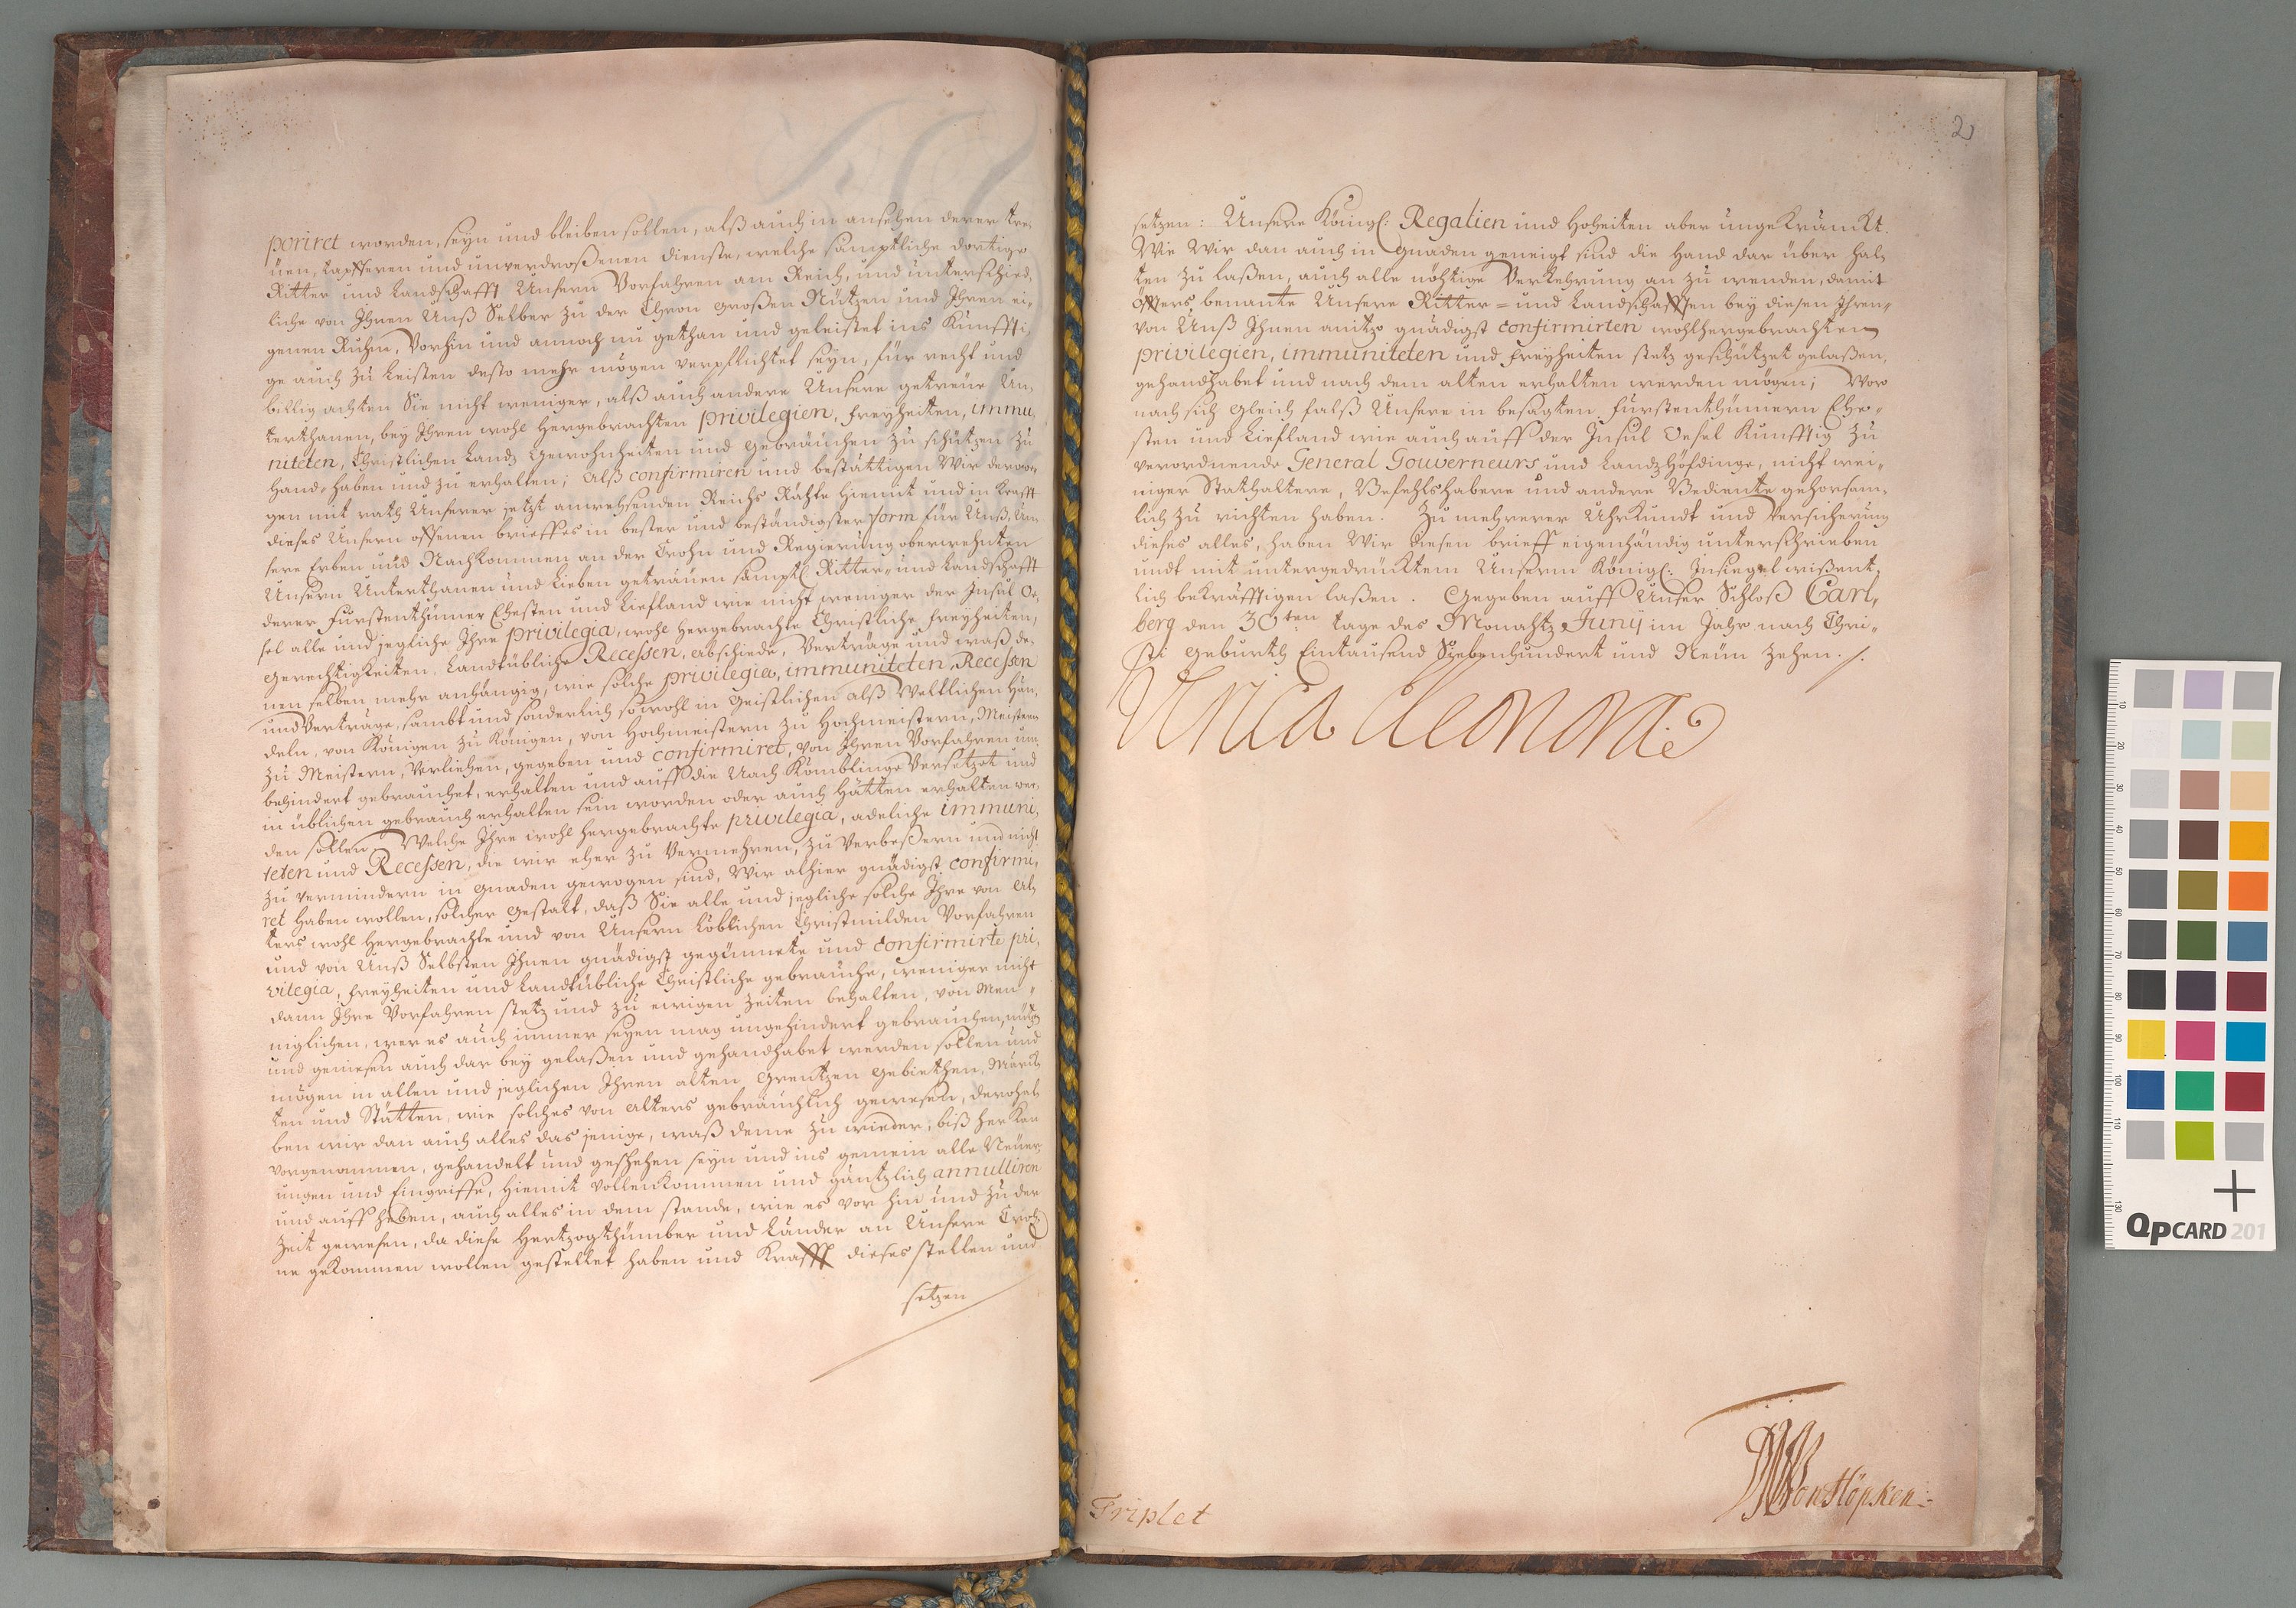 poriret worden, seyn und bleiben sollen, alß auch in ansehen derer tre,
üen, tapfferen und unverdroßenen dienste, welche sämptliche dortige
Ritter und Landschafft Unsern Vorfahren am Reich, und unterschied,
liche von Ihnen Unß Selber zu der Chron großen Nützen und Ihren ei,
genen Ruhm, Vorhin und annoch nu gethan und geleistet ins Künffti,
ge auch zu leisten desto mehr mögen verpflichtet seyn, für recht und
billig achten Sie nicht weniger, alß auch andere Unsere getreüe Un,
terthanen, bey Ihren wohl hergebrachten privilegien, freyheiten, immu,
niteten, Christlichen Landz Gewohnheiten und Gebräuchen zu schützen zu
hand,haben und zu erhalten; Alß confirmiren und bestättigen Wir derow,
gen mit rath Unserer jetzt anwehsenden Reichs Rähte hiemit und in Krafft
dieses Unsern offenen brieffes in bester und beständigster form für Unß, Un,
sere Erben und Nachkommen an der Crohn und Regierung oberwehnten
Unsern Unterthanen und Lieben getreüen sämptl: Ritter- und Landschafft
derer Fürstenthümer Ehesten und Liefland wie nicht weniger der Insul Oe,
sel alle und jegliche Ihre privilegia, wohl hergebrachte Christliche freyheiten,
Gerechtigkeiten, Landtübliche Recessen, Abschiede, Verträge und waß de,
nen selben mehr anhängig, wie solche privilegia, immuniteten, Recessen
und Verträge, sambt und sonderlich sowohl in Geistlichen alß Weltlichen Hän,
deln, von Königen zu Königen, von Hochmeistern zu Hochmeistern, Meistern
zu Meistern, Verliehen, gegeben und confirmiret, von Ihren Vorfahren un,
behindert gebrauchet, erhalten und auff die Nach Kömblinge Versetzet und
in üblichen gebrauch erhalten sein worden oder auch hätten erhalten wer,
den sollen. Welche Ihre wohl hergebrachte privilegia, adeliche immuni,
teten und Recessen, die wir eher zu Vermehren, zu Verbeßern und nicht
zu vermindern in Gnaden gewogen sind, Wir alhier gnädigst confirmi,
ret haben wollen, solcher gestalt, daß Sie alle und jegliche solche Ihre von Al,
ters wohl hergebrachte und von Unsern Löblichen Christmilden Vorfahren
und von Unß Selbsten Ihnen gnädigst gegünnete und confirmirte pri,
vilegia, freyheiten und Landtübliche Christliche gebräuche, weniger nicht
dann Ihre Vorfahren stetz und zu ewigen Zeiten behalten, von Men,
niglichen, wer es auch immer seyen mag ungehindert gebrauchen, nützen
und geniesen auch dar bey gelaßen und gehandhabet werden sollen und
mögen in allen und jeglichen Ihren alten Grentzen Gebiethen, Märck,
ten und Stätten, wie solches von Alters gebräuchlich gewesen, derohal,
ben wir dan auch alles das jenige, waß deme zu wieder, biß her kan
vorgenommen, gehandelt und geschehen seyn und ins gemein alle Neüer,
ungen und Eingriffe, hiemit vollenkommen und gäntzlich annulliren
und auffheben, auch alles in dem stande, wie es vor hin und zu der
Zeit gewesen, da diese Hertzogthümber und Länder an Unsere Croh,
ne gekommen wollen gestellet haben und Krafft dieses stellen und
setzen
2
setzen: Unsere Königl: Regalien und Hoheiten aber ungekränckt.
Wie Wir dan auch in Gnaden geneigt sind die Hand dar über hal,
ten zu laßen, auch alle nöhtige Verkehrung an zu wenden, damit
öffters benante Unsere Ritter- und Landschafften bey diesen Ihren,
von Unß Ihnen anitzo gnädigst confirmirten wohlhergebrachten
privilegien, immuniteten und freyheiten stetz geschützet gelaßen,
gehandhabet und nach dem alten erhalten werden mögen; Wor
nach sich gleich falß Unsere in besagten fürstenthümern Ehe,
sten und Liefland wie auch auff der Insul Oesel Künfftig zu
verordnende General Gouverneurs und Landzhöfdinge, nicht wei,
niger Stathaltere, Befehlshabere und andere Bediente gehorsam,
lich zu richten haben. Zu mehrerer Uhrkundt und Versicherung
dieses alles, haben Wir diesen brieff eigenhändig unterschrieben
undt mit untergedrücktem Unserm Königl: Insiegel wißent,
lich bekräfftigen laßen. Gegeben auff Unser Schloß Carl,
berg den 30ten tage des Monahtz Junij im Jahr nach Chri,
sti Geburth Eintausend Siebenhundert und Neün zehen. /.
Ulrica Eleonora
DNVonHöpken
Triplet
10
20
30
40
50
60
70
80
90
100
110
130
QPCARD 201